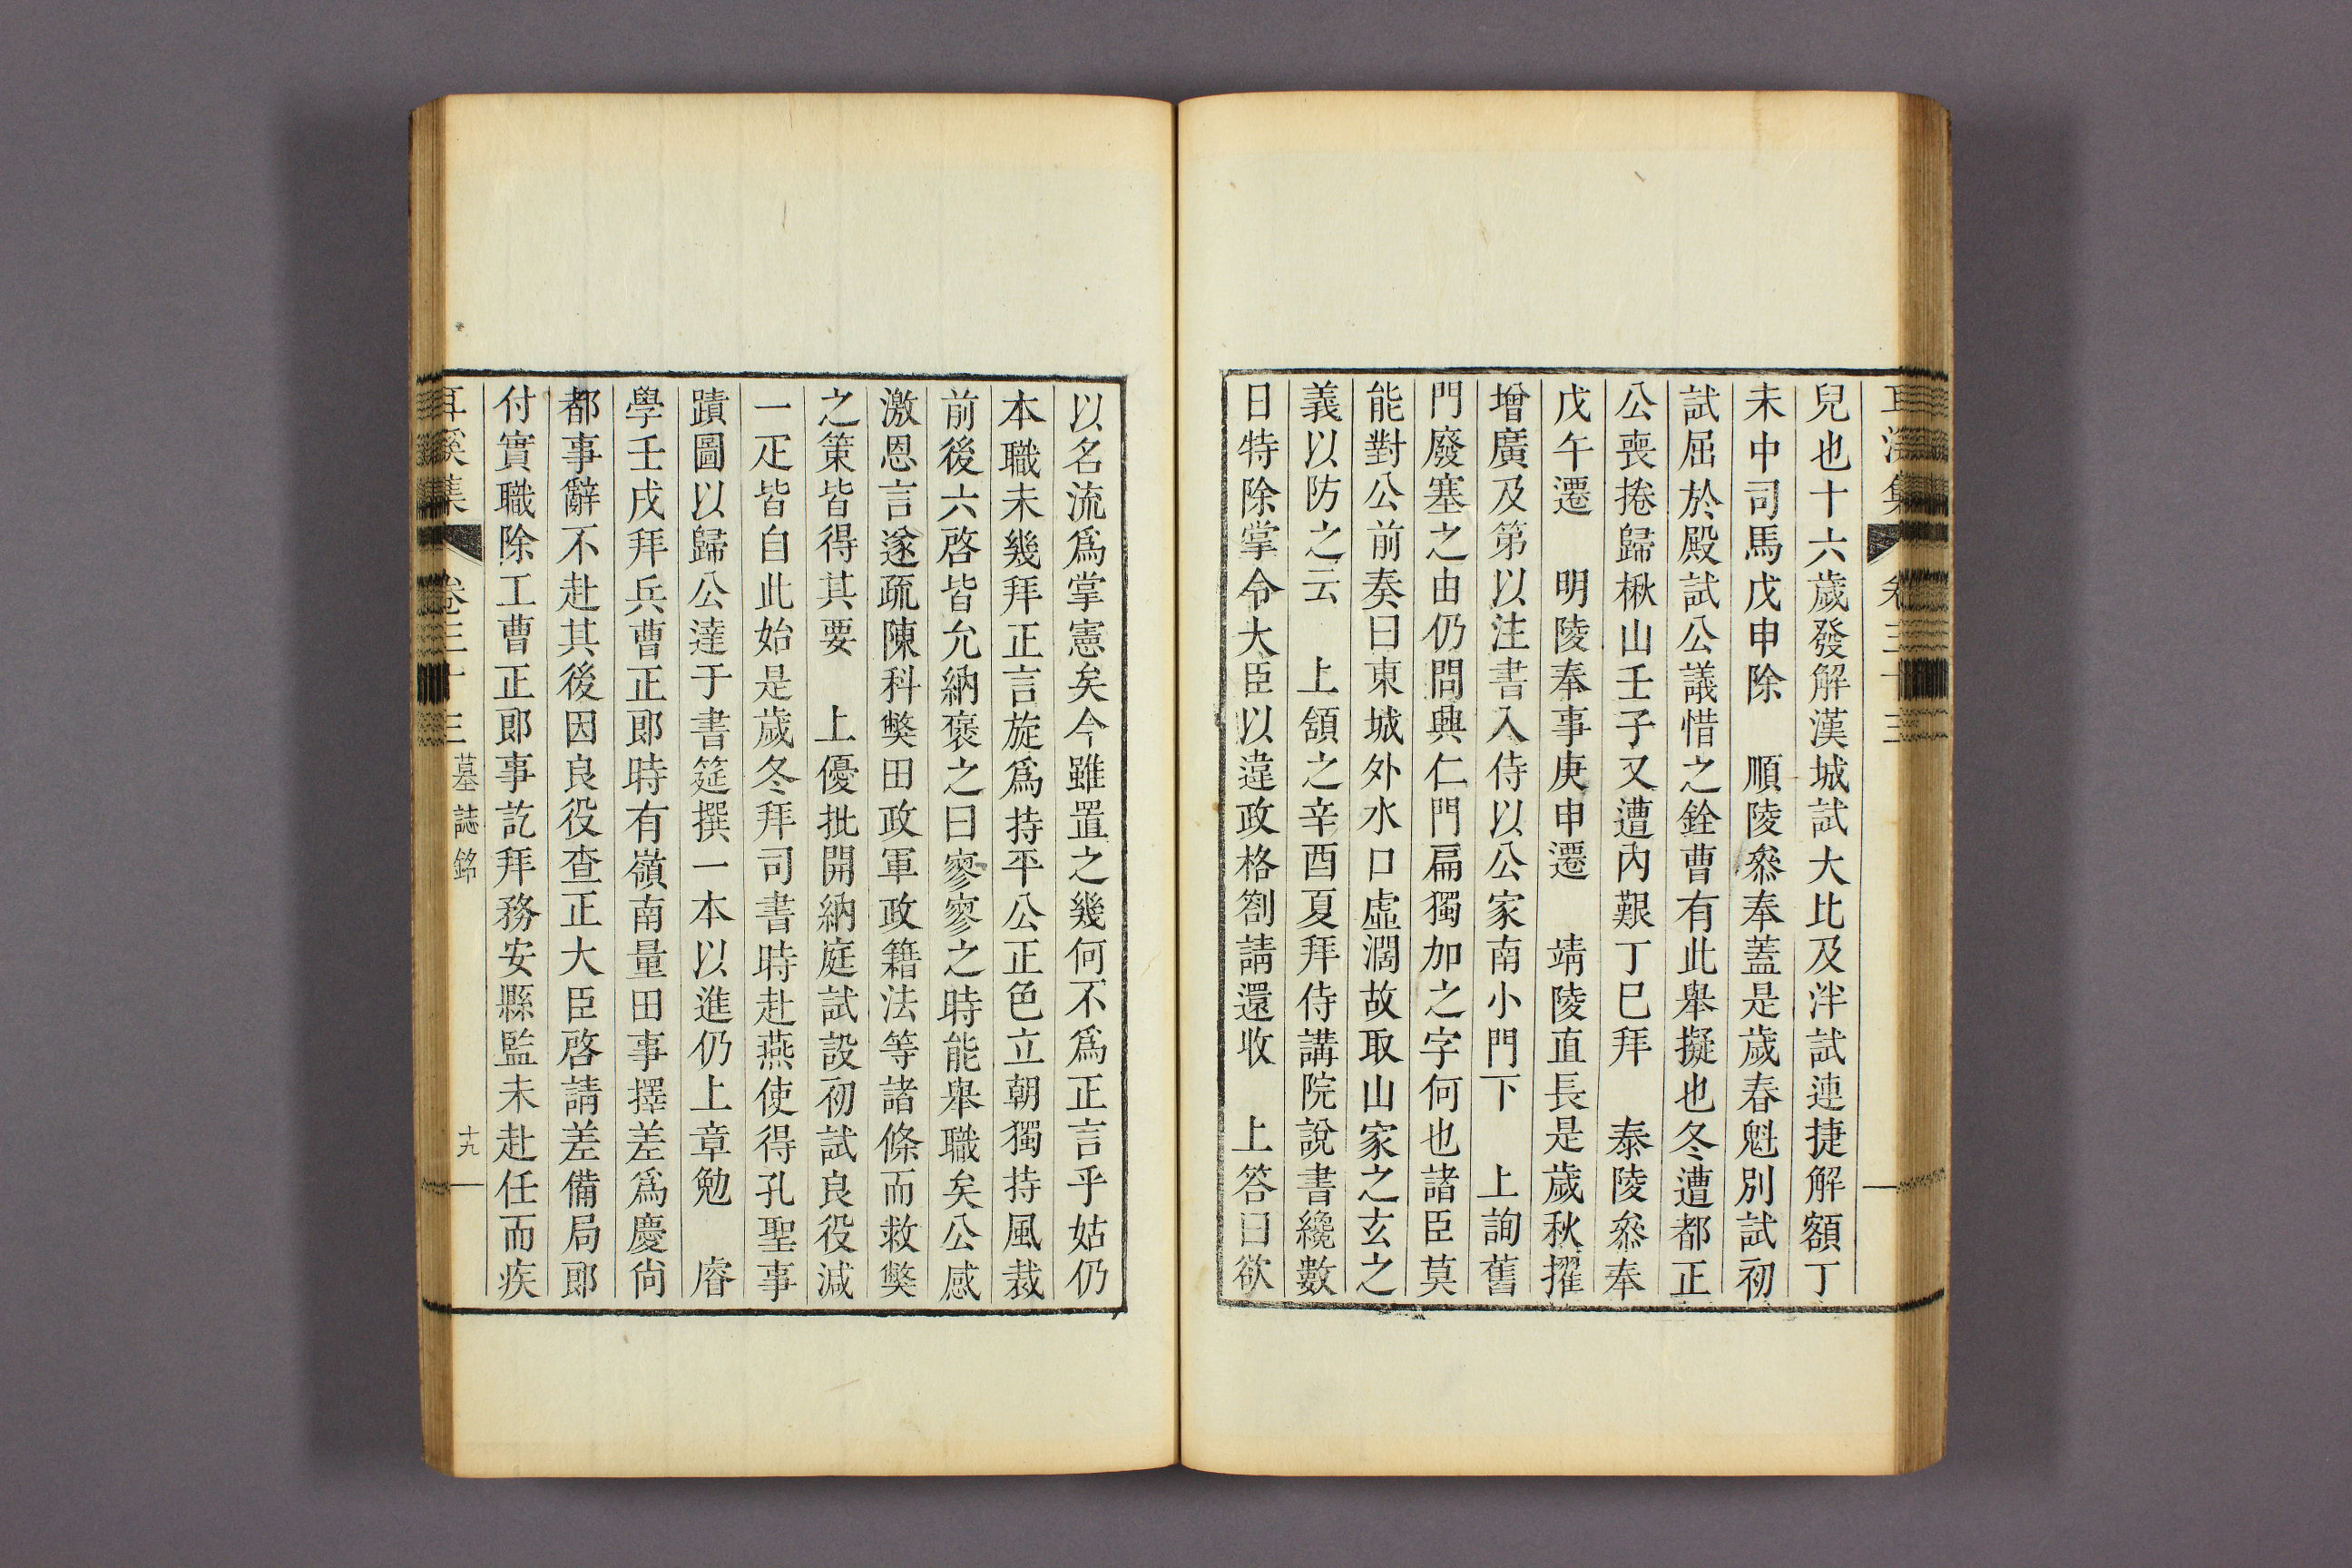 兒也十六歲發解漢城試大比及泮試連捷解額丁
未中司馬戊申除 順陵叅奉蓋是歲春魁別試初
試屈於殿試公議惜之銓曹有此舉擬也冬遭都正
公喪捲歸楸山壬子又遭內艱丁巳拜 泰陵叅奉
戊午遷 明陵奉事庚申遷 靖陵直長是歲秋擢
增廣及第以注書入侍以公家南小門下 上詢舊
門廢塞之由仍問興仁門扁獨加之字何也諸臣莫
能對公前奏曰東城外水口虛濶故取山家之玄之
義以防之云 上頷之辛酉夏拜侍講院說書纔數
日特除掌令大臣以違政格劄請還收 上答曰欲
以名流爲掌憲矣今雖置之幾何不爲正言乎姑仍
本職未幾拜正言旋爲持平公正色立朝獨持風裁
前後六啓皆允納褒之曰寥寥之時能舉職矣公感
激恩言遂疏陳科獘田政軍政籍法等諸條而救獘
之策皆得其要 上優批開納庭試設初試良役減
一疋皆自此始是歲冬拜司書時赴燕使得孔聖事
蹟圖以歸公達于書筵撰一本以進仍上章勉 睿
學壬戌拜兵曹正郎時有嶺南量田事擇差爲慶尙
都事辭不赴其後因良役查正大臣啓請差備局郎
付實職除工曹正郎事訖拜務安縣監未赴任而疾
耳溪集 卷三十三 墓誌銘 十九